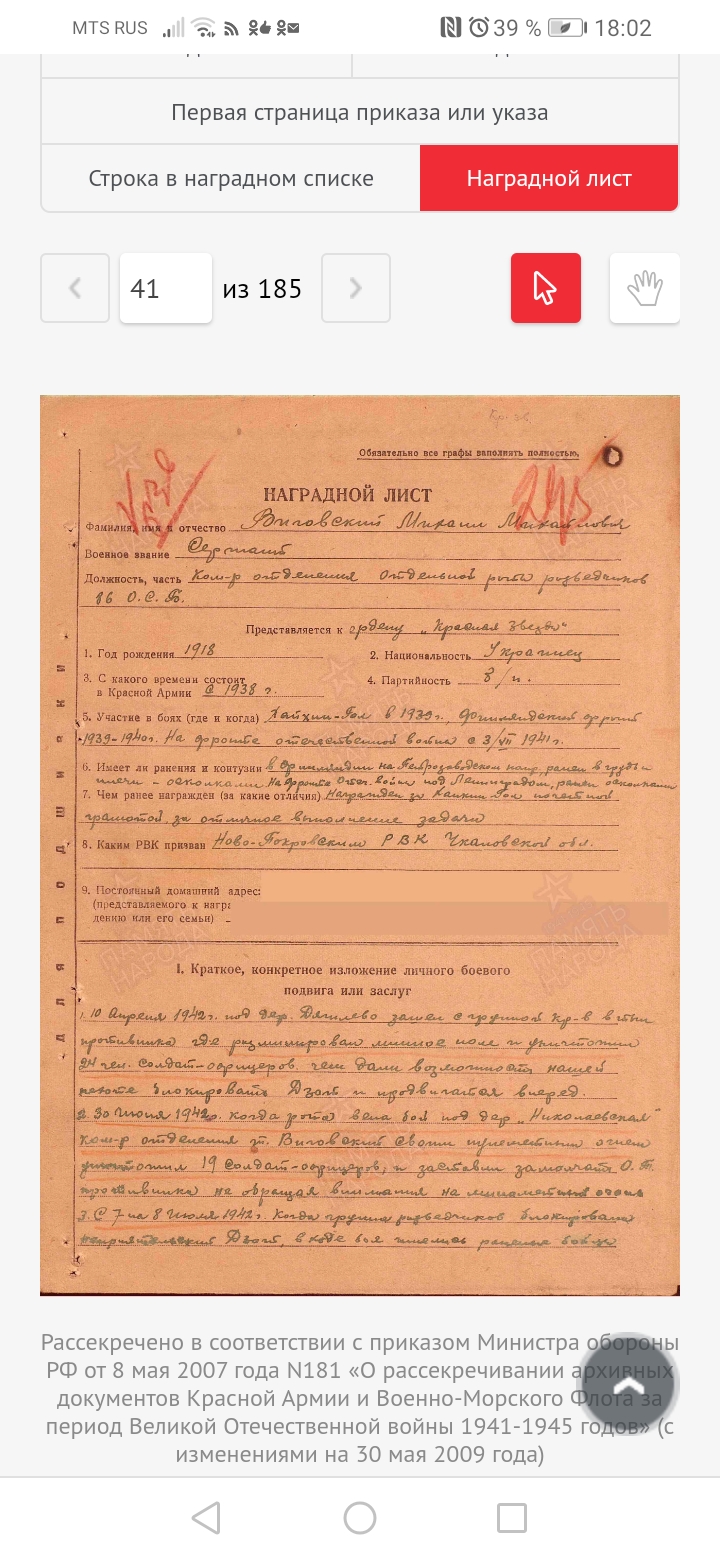 MTS RUS 39 % 18:02
Первая страница приказа или указа
Строка в наградном списке Наградной лист
41 из 185
Обязательно все графы заполнять полностью.
НАГРАДНОЙ ЛИСТ
Фамилия, имя и отчество Виговский Михаил Михайлович
Военное звание Сержант
Должность, часть Ком-р отделения отдельной роты разведчиков
86 О.С.Б.
Представляется к ордену „Красная Звезда"
1. Год рождения 1918 2. Национальность Украинец
3. С какого времени состоит
в Красной Армии С 1938 г. 4. Партийность б/п.
5. Участие в боях (где и когда) Халхин-Гол в 1939г., Финляндский фронт
1939-1940г. На фронте отечественной войны с 3/VII 1941г.
6. Имеет ли ранения и контузии в Финляндии на Петрозаводском напр. ранен в грудь и
плечи - осколками. На фронте Отеч. войны под Ленинградом, ранен осколками
7. Чем ранее награжден (за какие отличия) Награжден за Халхин Гол почетной
грамотой за отличное выполнение задачи
8. Каким РВК призван Ново-Покровским РВК Чкаловской обл.
9. Постоянный домашний адрес:
(представляемого к награ
дению или его семьи)
ДЛЯ ПОДШИВКИ
I. Краткое, конкретное изложение личного боевого
подвига или заслуг
1. 10 Апреля 1942г. под дер. Дягилево зашел с группой кр-в в тыл
противника где разминировал минное поле и уничтожил
24 чел. солдат-офицеров. чем дали возможность нашей
пехоте блокировать Дзот и продвигатся вперед.
2. 30 Июня 1942г. когда рота вела бой под дер „Николаевская"
ком-р отделения т. Виговский своим пулеметным огнем
уничтожил 19 солдат-офицеров, и заставил замолчать О.Т.
противника не обращая внимания на минаметный огонь
3. С 7 на 8 Июля 1942г. Когда группа разведчиков блокировала
неприятельский Дзот, в ходе боя имелись раненые бойцы
ПАМЯТЬ
НАРОДА
Рассекречено в соответствии с приказом Министра обороны
РФ от 8 мая 2007 года N181 «О рассекречивании архивных
документов Красной Армии и Военно-Морского Флота за
период Великой Отечественной войны 1941-1945 годов» (с
изменениями на 30 мая 2009 года)